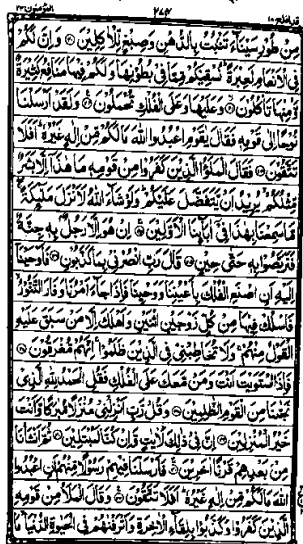 قد افلح ۱۸ ۲۷۴ المؤمنون ۲۳
مِنْ طُوْرِ سَيْنَآءَ تَنْۢبُتُ بِالدُّهْنِ وَصِبْغٍ لِّلْاٰكِلِيْنَ ۝۲۰ وَاِنَّ لَكُمْ
فِى الْاَنْعَامِ لَعِبْرَةً ؕ نُسْقِيْكُمْ مِّمَّا فِىْ بُطُوْنِهَا وَلَكُمْ فِيْهَا مَنَافِعُ كَثِيْرَةٌ
وَّمِنْهَا تَاْكُلُوْنَ ۝۲۱ وَعَلَيْهَا وَعَلَى الْفُلْكِ تُحْمَلُوْنَ ۝۲۲ وَلَقَدْ اَرْسَلْنَا
نُوْحًا اِلٰى قَوْمِهٖ فَقَالَ يٰقَوْمِ اعْبُدُوا اللّٰهَ مَا لَكُمْ مِّنْ اِلٰهٍ غَيْرُهٗ ؕ اَفَلَا
تَتَّقُوْنَ ۝۲۳ فَقَالَ الْمَلَؤُا الَّذِيْنَ كَفَرُوْا مِنْ قَوْمِهٖ مَا هٰذَاۤ اِلَّا بَشَرٌ
مِّثْلُكُمْ يُرِيْدُ اَنْ يَّتَفَضَّلَ عَلَيْكُمْ ؕ وَلَوْ شَآءَ اللّٰهُ لَاَنْزَلَ مَلٰٓئِكَةً
مَّا سَمِعْنَا بِهٰذَا فِىْۤ اٰبَآئِنَا الْاَوَّلِيْنَ ۝۲۴ اِنْ هُوَ اِلَّا رَجُلٌۢ بِهٖ جِنَّةٌ
فَتَرَبَّصُوْا بِهٖ حَتّٰى حِيْنٍ ۝۲۵ قَالَ رَبِّ انْصُرْنِىْ بِمَا كَذَّبُوْنِ ۝۲۶ فَاَوْحَيْنَاۤ
اِلَيْهِ اَنِ اصْنَعِ الْفُلْكَ بِاَعْيُنِنَا وَوَحْيِنَا فَاِذَا جَآءَ اَمْرُنَا وَفَارَ التَّنُّوْرُ
فَاسْلُكْ فِيْهَا مِنْ كُلٍّ زَوْجَيْنِ اثْنَيْنِ وَاَهْلَكَ اِلَّا مَنْ سَبَقَ عَلَيْهِ
الْقَوْلُ مِنْهُمْ ۚ وَلَا تُخَاطِبْنِىْ فِى الَّذِيْنَ ظَلَمُوْا ۚ اِنَّهُمْ مُّغْرَقُوْنَ ۝۲۷
فَاِذَا اسْتَوَيْتَ اَنْتَ وَمَنْ مَّعَكَ عَلَى الْفُلْكِ فَقُلِ الْحَمْدُ لِلّٰهِ الَّذِىْ
نَجّٰنَا مِنَ الْقَوْمِ الظّٰلِمِيْنَ ۝۲۸ وَقُلْ رَّبِّ اَنْزِلْنِىْ مُنْزَلًا مُّبٰرَكًا وَّاَنْتَ
خَيْرُ الْمُنْزِلِيْنَ ۝۲۹ اِنَّ فِىْ ذٰلِكَ لَاٰيٰتٍ وَّاِنْ كُنَّا لَمُبْتَلِيْنَ ۝۳۰ ثُمَّ اَنْشَاْنَا
مِنْۢ بَعْدِهِمْ قَرْنًا اٰخَرِيْنَ ۝۳۱ فَاَرْسَلْنَا فِيْهِمْ رَسُوْلًا مِّنْهُمْ اَنِ اعْبُدُوا
اللّٰهَ مَا لَكُمْ مِّنْ اِلٰهٍ غَيْرُهٗ ؕ اَفَلَا تَتَّقُوْنَ ۝۳۲ وَقَالَ الْمَلَاُ مِنْ قَوْمِهِ
الَّذِيْنَ كَفَرُوْا وَكَذَّبُوْا بِلِقَآءِ الْاٰخِرَةِ وَاَتْرَفْنٰهُمْ فِى الْحَيٰوةِ الدُّنْيَا ۙ مَا